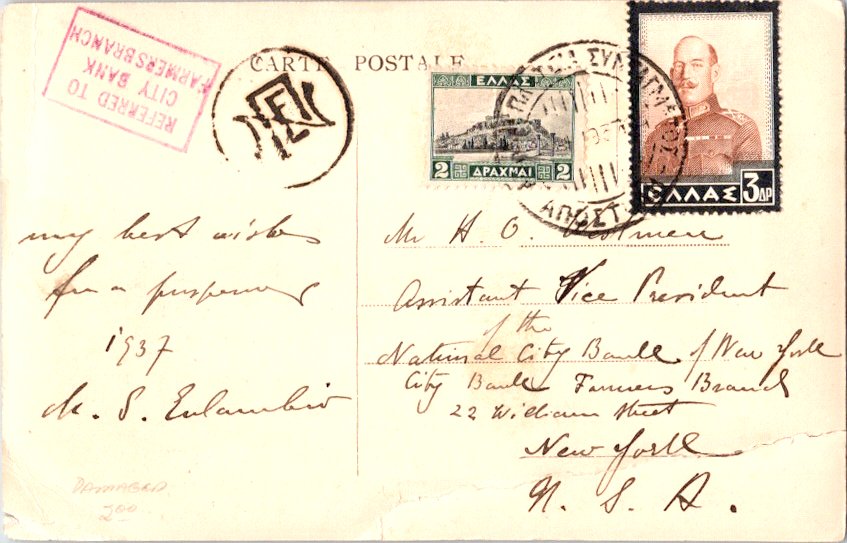 REFERRED TO
CITY BANK
FARMERS BRANCH
CARTE POSTALE
ΕΛΛΑΣ
2 ΔΡΑΧΜΑΙ 2
ΕΛΛΑΣ 3 ΔΡ
ΑΠΟΣΤ
my best wishes
for a prosperous
1937
Mr H. O.
Assistant Vice President
of the
National City Bank of New York
City Bank Farmers Branch
22 William Street
New York
U. S. A.
DAMAGED
200